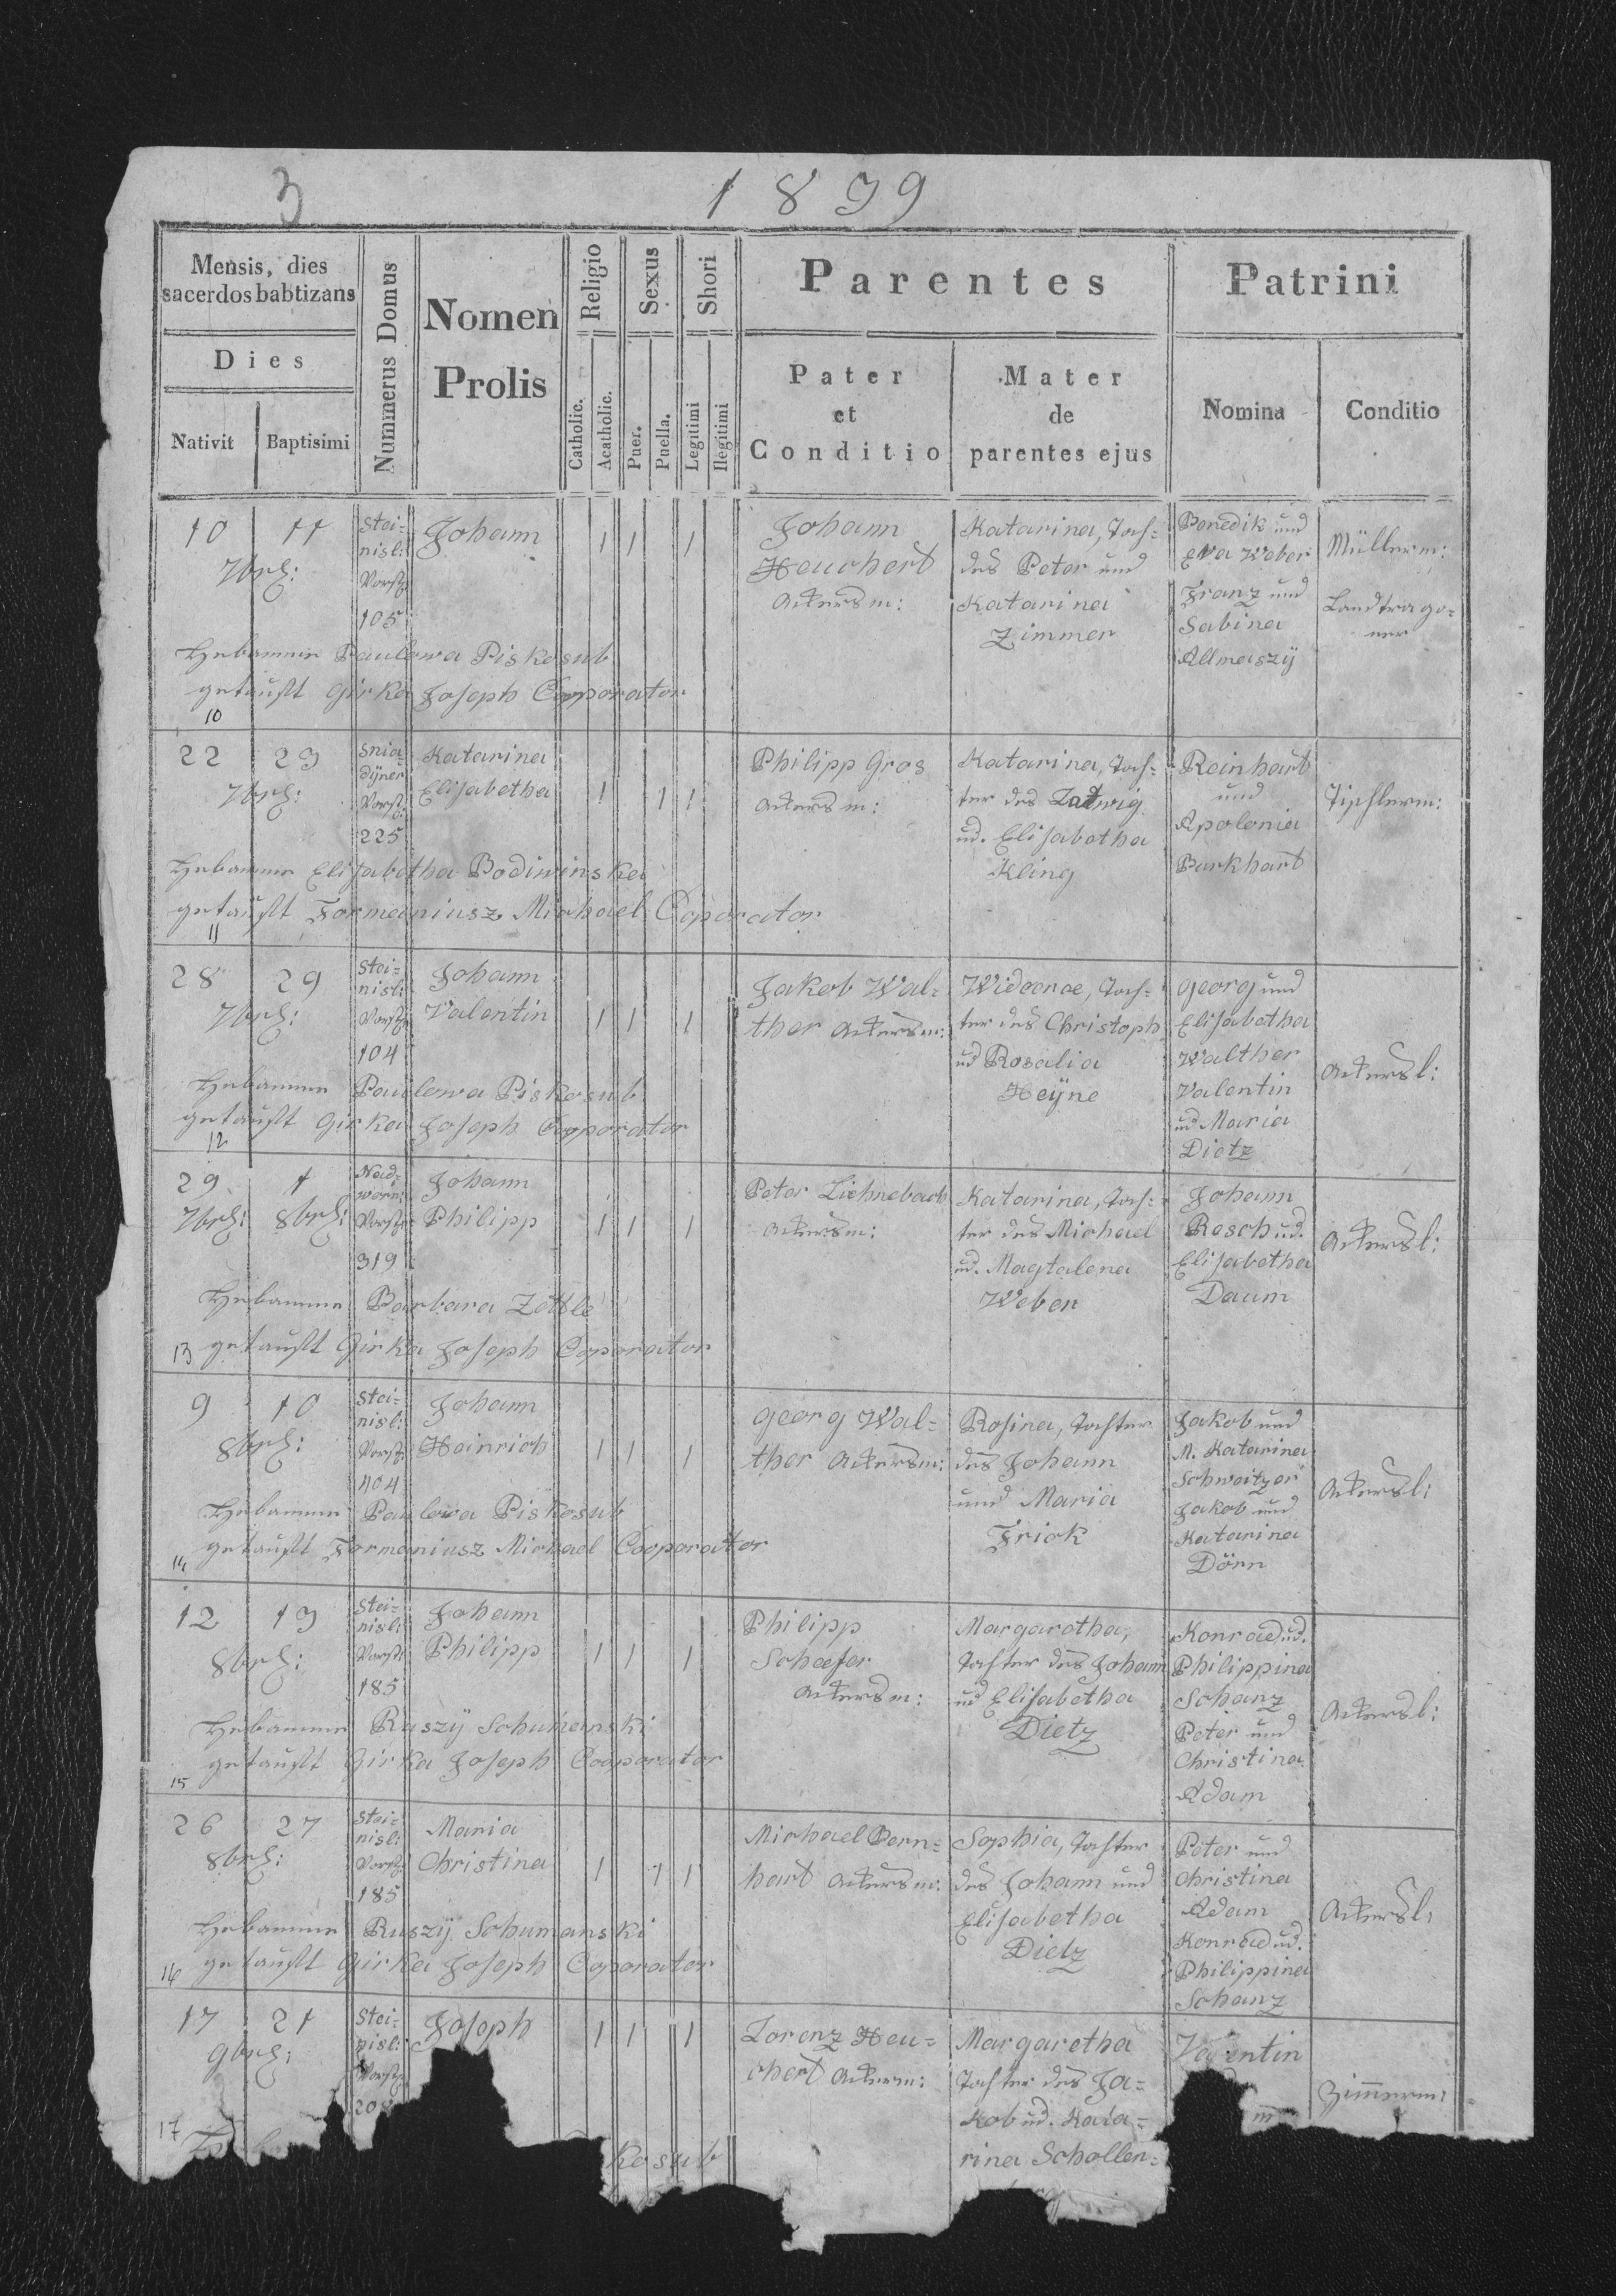 3
1839
Mensis, dies
sacerdos babtizans
Dies
Nativit
Baptisimi
Nummerus Domus
Nomen
Prolis
Religio
Catholic.
Acatholic.
Sexus
Puer.
Puella.
Shori
Legitimi
Ilegitimi
Parentes
Pater
et
Conditio
Mater
de
parentes ejus
Patrini
Nomina
Conditio
10
11
7brs:
Stai=
nisl:
Vorst.
105
Johann
1 1 1
Johann
Heuchert
Akersm:
Katarina, Toch=
des Peter und
Katarina
Zimmer
Benedik und
Eva Weber
Franz und
Sabina
Allmaszÿ
Müllerm:
Landtrago=
ner
Hebamme Paulowa Piskosub
getauft Girka Joseph Copporator
10
22
23
7brs:
Snia
dÿner
Vorst.
225
Katarina
Elisabetha
1 1 1
Philipp Gros
Akersm:
Katarina, Toch=
ter des Ladwig
ud. Elisabetha
Kling
Reinhart
und
Apolonia
Parkhart
Tischlerm:
Hebamme Elisabetha Bodiwinska
getauft Formaniusz Michael Coporator
11
28
29
7brs:
Stai=
nisl:
Vorst.
104
Johann
Valentin
1 1 1
Jakob Wal=
ther Akersm:
Wideonae, Toch=
ter des Christoph
ud Rosalia
Heÿne
Georg und
Elisabetha
Walther
Valentin
ud Maria
Dietz
Akersl:
Hebamme Paulowa Piskosub
getauft Girka Joseph Copporator
12
29
1
7brs:
8brs:
Nad=
worn:
Vorst.
319
Johann
Philipp
1 1 1
Peter Liehnebach
Akersm:
Katarina, Toch=
ter des Michael
ud. Magtalena
Weber
Johann
Rasch ud.
Elisabetha
Daum
Akersl:
Hebamme Barbara Zettle
13 getauft Girka Joseph Coporator
9
10
8brs:
Stai=
nisl:
Vorst.
404
Johann
Heinrich
1 1 1
Georg Wal=
ther Akersm:
Rosina, Tochter
des Johann
und Maria
Frick
Jakob und
M. Katarina
Schweitzer
Jakob und
Katarina
Dörn
Akersl:
Hebamme Paulowa Piskosub
getauft Formaniusz Michael Cooporator
14
12
13
8brs:
Stai=
nisl:
Vorst.
185
Johann
Philipp
1 1 1
Philipp
Schaefer
Akersm:
Margaretha,
Tochter des Johann
ud Elisabetha
Dietz
Konrad ud.
Philippina
Schanz
Peter und
Christina
Adam
Akersl:
Hebamme Ruszÿ Schumanski
getauft Girka Joseph Cooporator
15
26
27
8brs:
Stai=
nisl:
Vorst.
185
Maria
Christina
1 1 1
Michael Bern=
hart Akersm:
Sophia, Tochter
des Johann und
Elisabetha
Dietz
Peter und
Christina
Adam
Konrad ud.
Philippina
Schanz
Akersl:
Hebamme Ruszÿ Schumanski
16 getauft Girka Joseph Coporator
17
21
9brs:
Stai=
nisl:
Vorst.
Joseph
1 1 1
Lorenz Heu=
chert Akersm:
Margaretha
Tochter des Ja=
kob ud. Kata=
rina Schollen=
Valentin
Zimmerm:
17
kosub